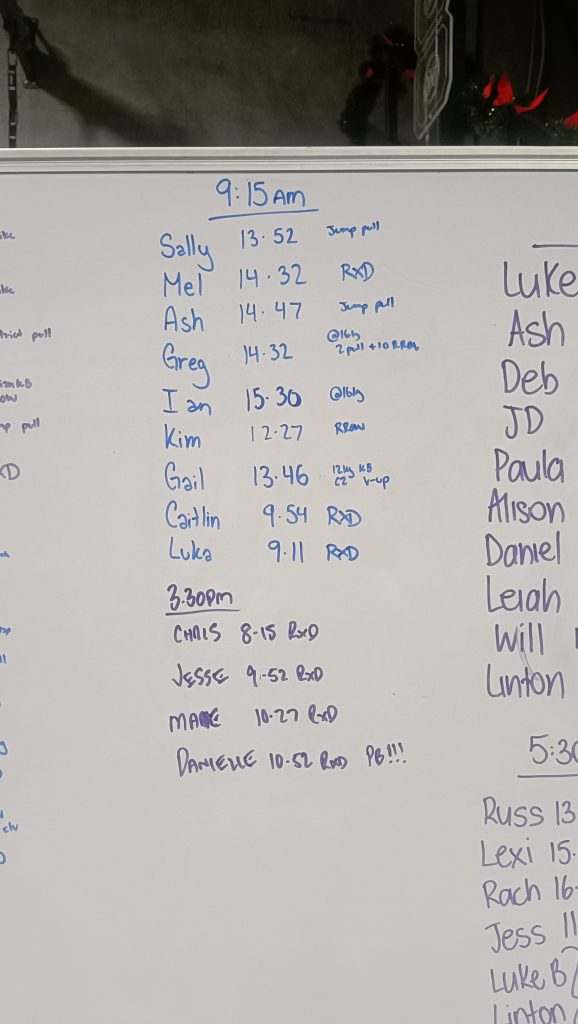 9:15 AM
Sally 13.52 Jump pull
Mel 14.32 RXD
Ash 14.47 Jump pull
Greg 14.32 @16kg 2 pull + 10 RRow
Ian 15.30 @16kg
Kim 12.27 RRow
Gail 13.46 12kg KB V-up
Caitlin 9.54 RXD
Luka 9.11 RXD
3.30pm
CHRIS 8-15 RXD
JESSE 9.52 RXD
10-27 RXD
DANIELLE 10-52 RXD PB!!!
trict pull
pull
Luke
Ash
Deb
JD
Paula
Alison
Daniel
Leiah
Will
Linton
5:30
Russ 13
Lexi 15.
Rach 16-
Jess 11
Luke B
Linton